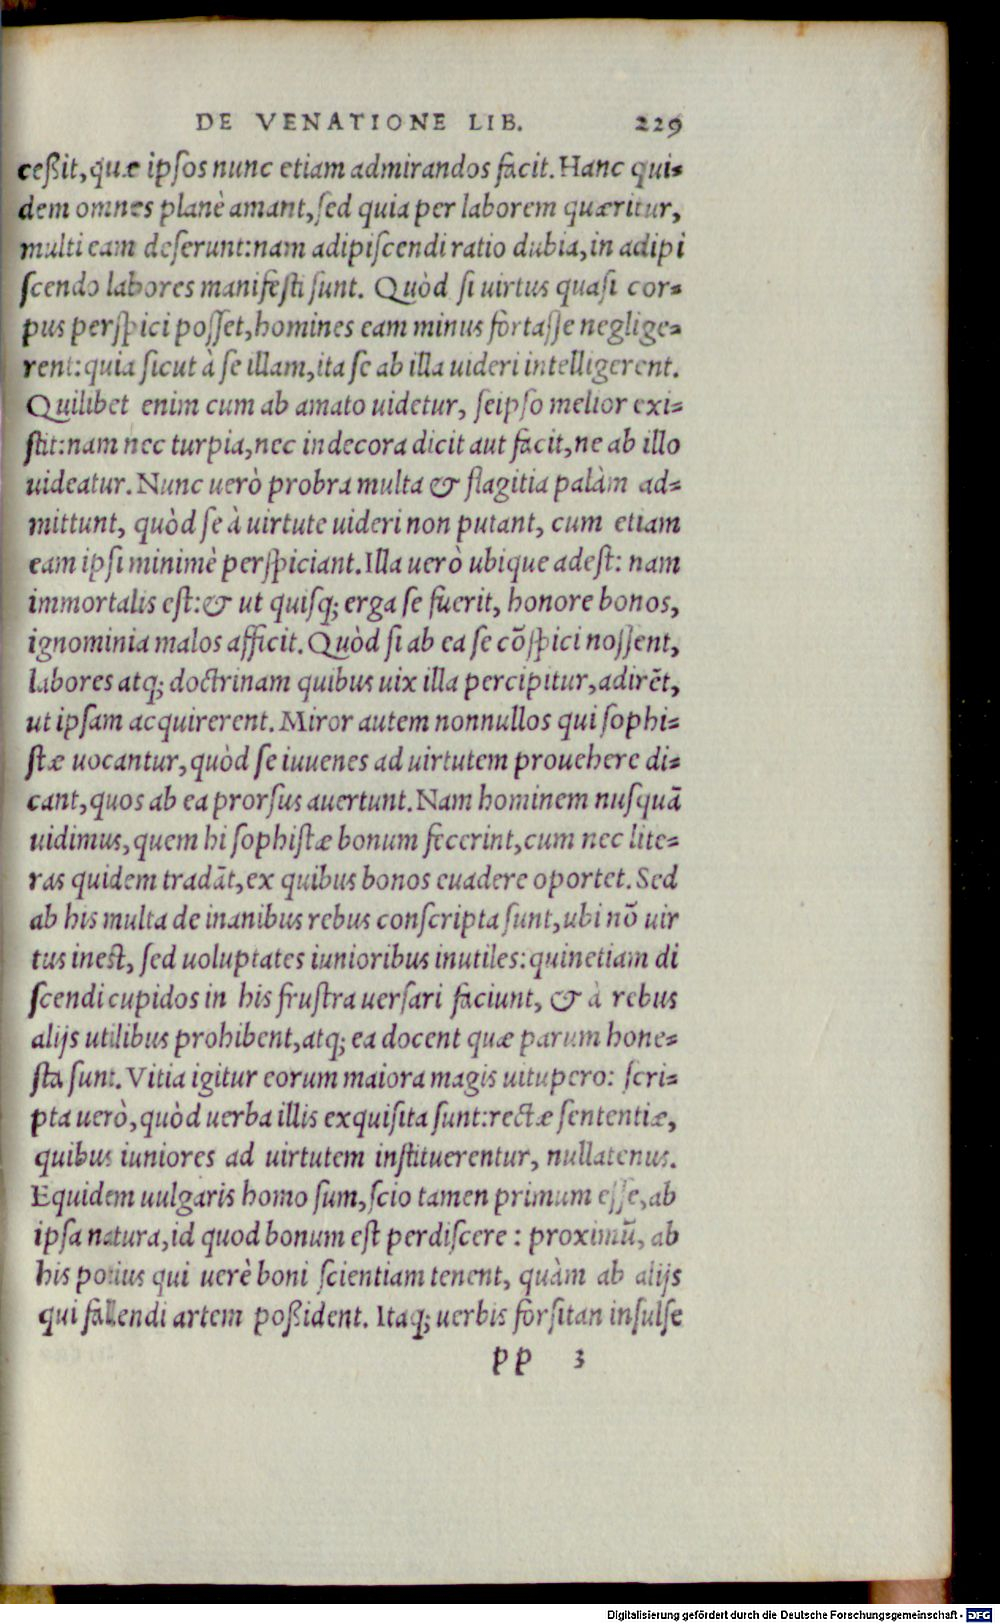 DE VENATIONE LIB. 229
ceßit, quæ ipſos nunc etiam admirandos facit. Hanc qui-
dem omnes planè amant, ſed quia per laborem quæritur,
multi eam deſerunt: nam adipiſcendi ratio dubia, in adipi
ſcendo labores manifeſti ſunt. Quòd ſi uirtus quaſi cor-
pus perſpici poſſet, homines eam minus fortaſſe neglige-
rent: quia ſicut à ſe illam, ita ſe ab illa uideri intelligerent.
Quilibet enim cum ab amato uidetur, ſeipſo melior exi-
ſtit: nam nec turpia, nec indecora dicit aut facit, ne ab illo
uideatur. Nunc uerò probra multa & flagitia palàm ad-
mittunt, quòd ſe à uirtute uideri non putant, cum etiam
eam ipſi minimè perſpiciant. Illa uerò ubique adeſt: nam
immortalis eſt: & ut quiſq; erga ſe fuerit, honore bonos,
ignominia malos afficit. Quòd ſi ab ea ſe cõſpici noſſent,
labores atq; doctrinam quibus uix illa percipitur, adirẽt,
ut ipſam acquirerent. Miror autem nonnullos qui ſophi-
ſtæ uocantur, quòd ſe iuuenes ad uirtutem prouehere di-
cant, quos ab ea prorſus auertunt. Nam hominem nuſquã
uidimus, quem hi ſophiſtæ bonum fecerint, cum nec lite-
ras quidem tradãt, ex quibus bonos euadere oportet. Sed
ab his multa de inanibus rebus conſcripta ſunt, ubi nõ uir
tus ineſt, ſed uoluptates iunioribus inutiles: quinetiam di
ſcendi cupidos in his fruſtra uerſari faciunt, & à rebus
alijs utilibus prohibent, atq; ea docent quæ parum hone-
ſta ſunt. Vitia igitur eorum maiora magis uitupero: ſcri-
pta uerò, quòd uerba illis exquiſita ſunt: rectæ ſententiæ,
quibus iuniores ad uirtutem inſtituerentur, nullatenus.
Equidem uulgaris homo ſum, ſcio tamen primum eſſe, ab
ipſa natura, id quod bonum eſt perdiſcere : proximũ, ab
his potius qui uerè boni ſcientiam tenent, quàm ab alijs
qui fallendi artem poßident. Itaq; uerbis forſitan inſulſe
pp 3
Digitalisierung gefördert durch die Deutsche Forschungsgemeinschaft - DFG